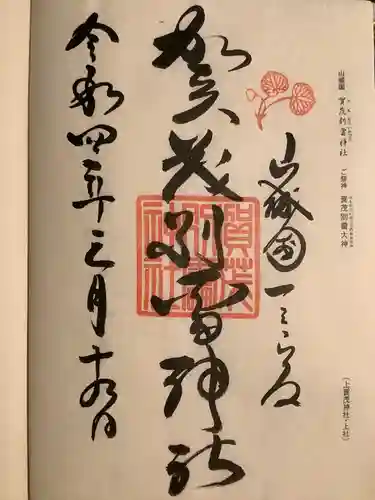 山城國 賀茂別雷神社 ご祭神 賀茂別雷大神
(上賀茂神社・上社)
山城國一之宮
賀茂別雷神社
賀茂別雷神社
令和四年三月十九日